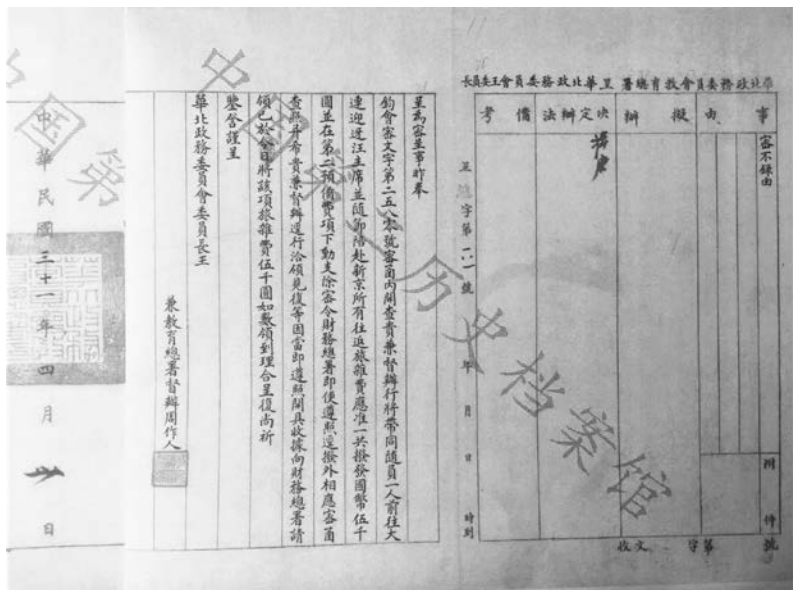 華北政務委員會教育總署 呈 華北政務委員會王委員長
事由
擬辦
決定辦法
備考
密不錄由
附件
號
收文 字第
呈 字第 一二一 號 年 月 日 時到
呈為密呈事昨奉
鈞會密文字第二五八零號密函內開查貴兼督辦行將帶同隨員一人前往大
連迎迓汪主席並隨節陪赴新京所有往返旅雜費應准一共撥發國幣伍千
圓並在第二預備費項下動支除密令財務總署即便遵照逕撥外相應密函
查照并希貴兼督辦逕行洽領見復等因當即遵照開具收據向財務總署請
領已於今日將該項旅雜費伍千圓如數領到理合呈復尚祈
鑒詧謹呈
華北政務委員會委員長王
兼教育總署督辦周作人
中華民國三十一年四月 日
中国第二历史档案馆